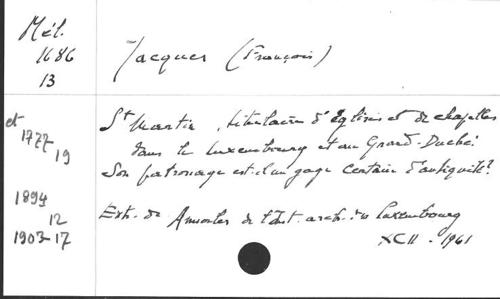 Mél.
1686
13
Jacques (François)
et
1727-19
1894
12
1903-17
St Martin, titulaire d'églises et de chapelles
dans le Luxembourg et au Grand-Duché.
Son patronage est-il un gage certain d'antiquité?
Extr. de Annales de l'Inst. arch. du Luxembourg
XCII. 1961